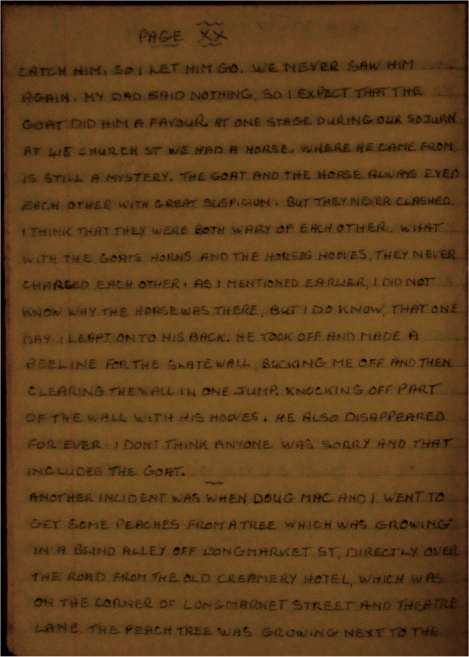 PAGE XX
CATCH HIM, SO I LET HIM GO. WE NEVER SAW HIM
AGAIN. MY DAD SAID NOTHING, SO I EXPECT THAT THE
GOAT DID HIM A FAVOUR. AT ONE STAGE DURING OUR SOJURN
AT CHURCH ST WE HAD A HORSE. WHERE HE CAME FROM
IS STILL A MYSTERY. THE GOAT AND THE HORSE ALWAYS EYED
EACH OTHER WITH GREAT SUSPICION. BUT THEY NEVER CLASHED.
I THINK THAT THEY WERE BOTH WARY OF EACH OTHER. WHAT
WITH THE GOATS HORNS AND THE HORSES HOOVES, THEY NEVER
CHARGED EACH OTHER. AS I MENTIONED EARLIER, I DID NOT
KNOW WHY THE HORSE WAS THERE, BUT I DO KNOW, THAT ONE
DAY I LEAPT ONTO HIS BACK. HE TOOK OFF AND MADE A
BEELINE FOR THE SLATE WALL, BUCKING ME OFF AND THEN
CLEARING THE WALL IN ONE JUMP. KNOCKING OFF PART
OF THE WALL WITH HIS HOOVES. HE ALSO DISAPPEARED
FOR EVER. I DONT THINK ANYONE WAS SORRY AND THAT
INCLUDES THE GOAT.
ANOTHER INCIDENT WAS WHEN DOUG MAC AND I WENT TO
GET SOME PEACHES FROM A TREE WHICH WAS GROWING
IN A BLIND ALLEY OFF LONGMARKET ST, DIRECTLY OVER
THE ROAD FROM THE OLD CREAMERY HOTEL, WHICH WAS
ON THE CORNER OF LONGMARKET STREET AND THEATRE
LANE. THE PEACH TREE WAS GROWING NEXT TO THE